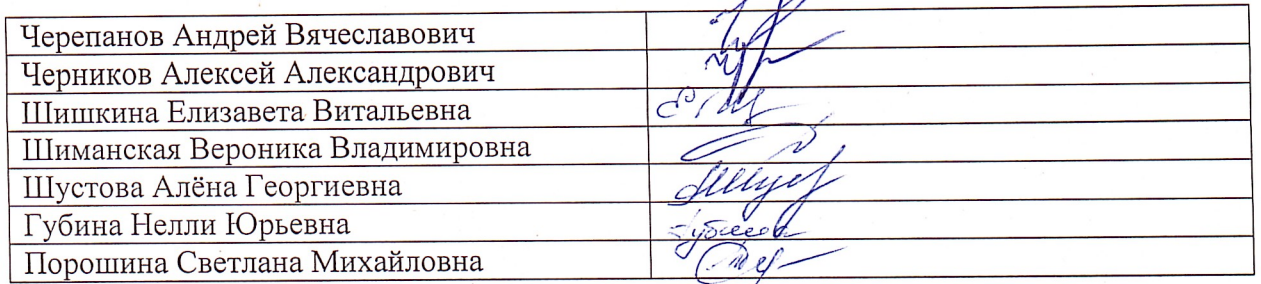 Черепанов Андрей Вячеславович
Черников Алексей Александрович
Шишкина Елизавета Витальевна
Шиманская Вероника Владимировна
Шустова Алёна Георгиевна
Губина Нелли Юрьевна
Порошина Светлана Михайловна